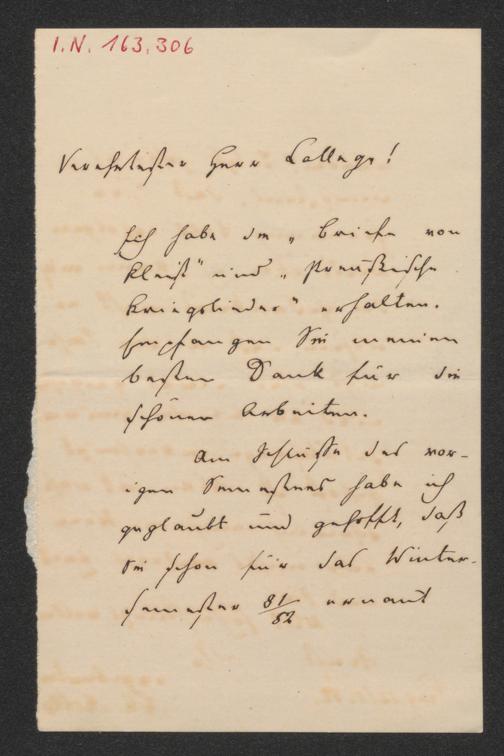 I.N. 163.306
Verehrtester Herr College!
Ich habe die „Briefe von
Kleist" und „Preußische
Kriegslieder" erhalten.
Empfangen Sie meinen
besten Dank für die
schönen Arbeiten.
Am Schlusse des vor-
igen Semesters habe ich
geglaubt und gehofft, daß
Sie schon für das Winter-
semester 81/82 ernant